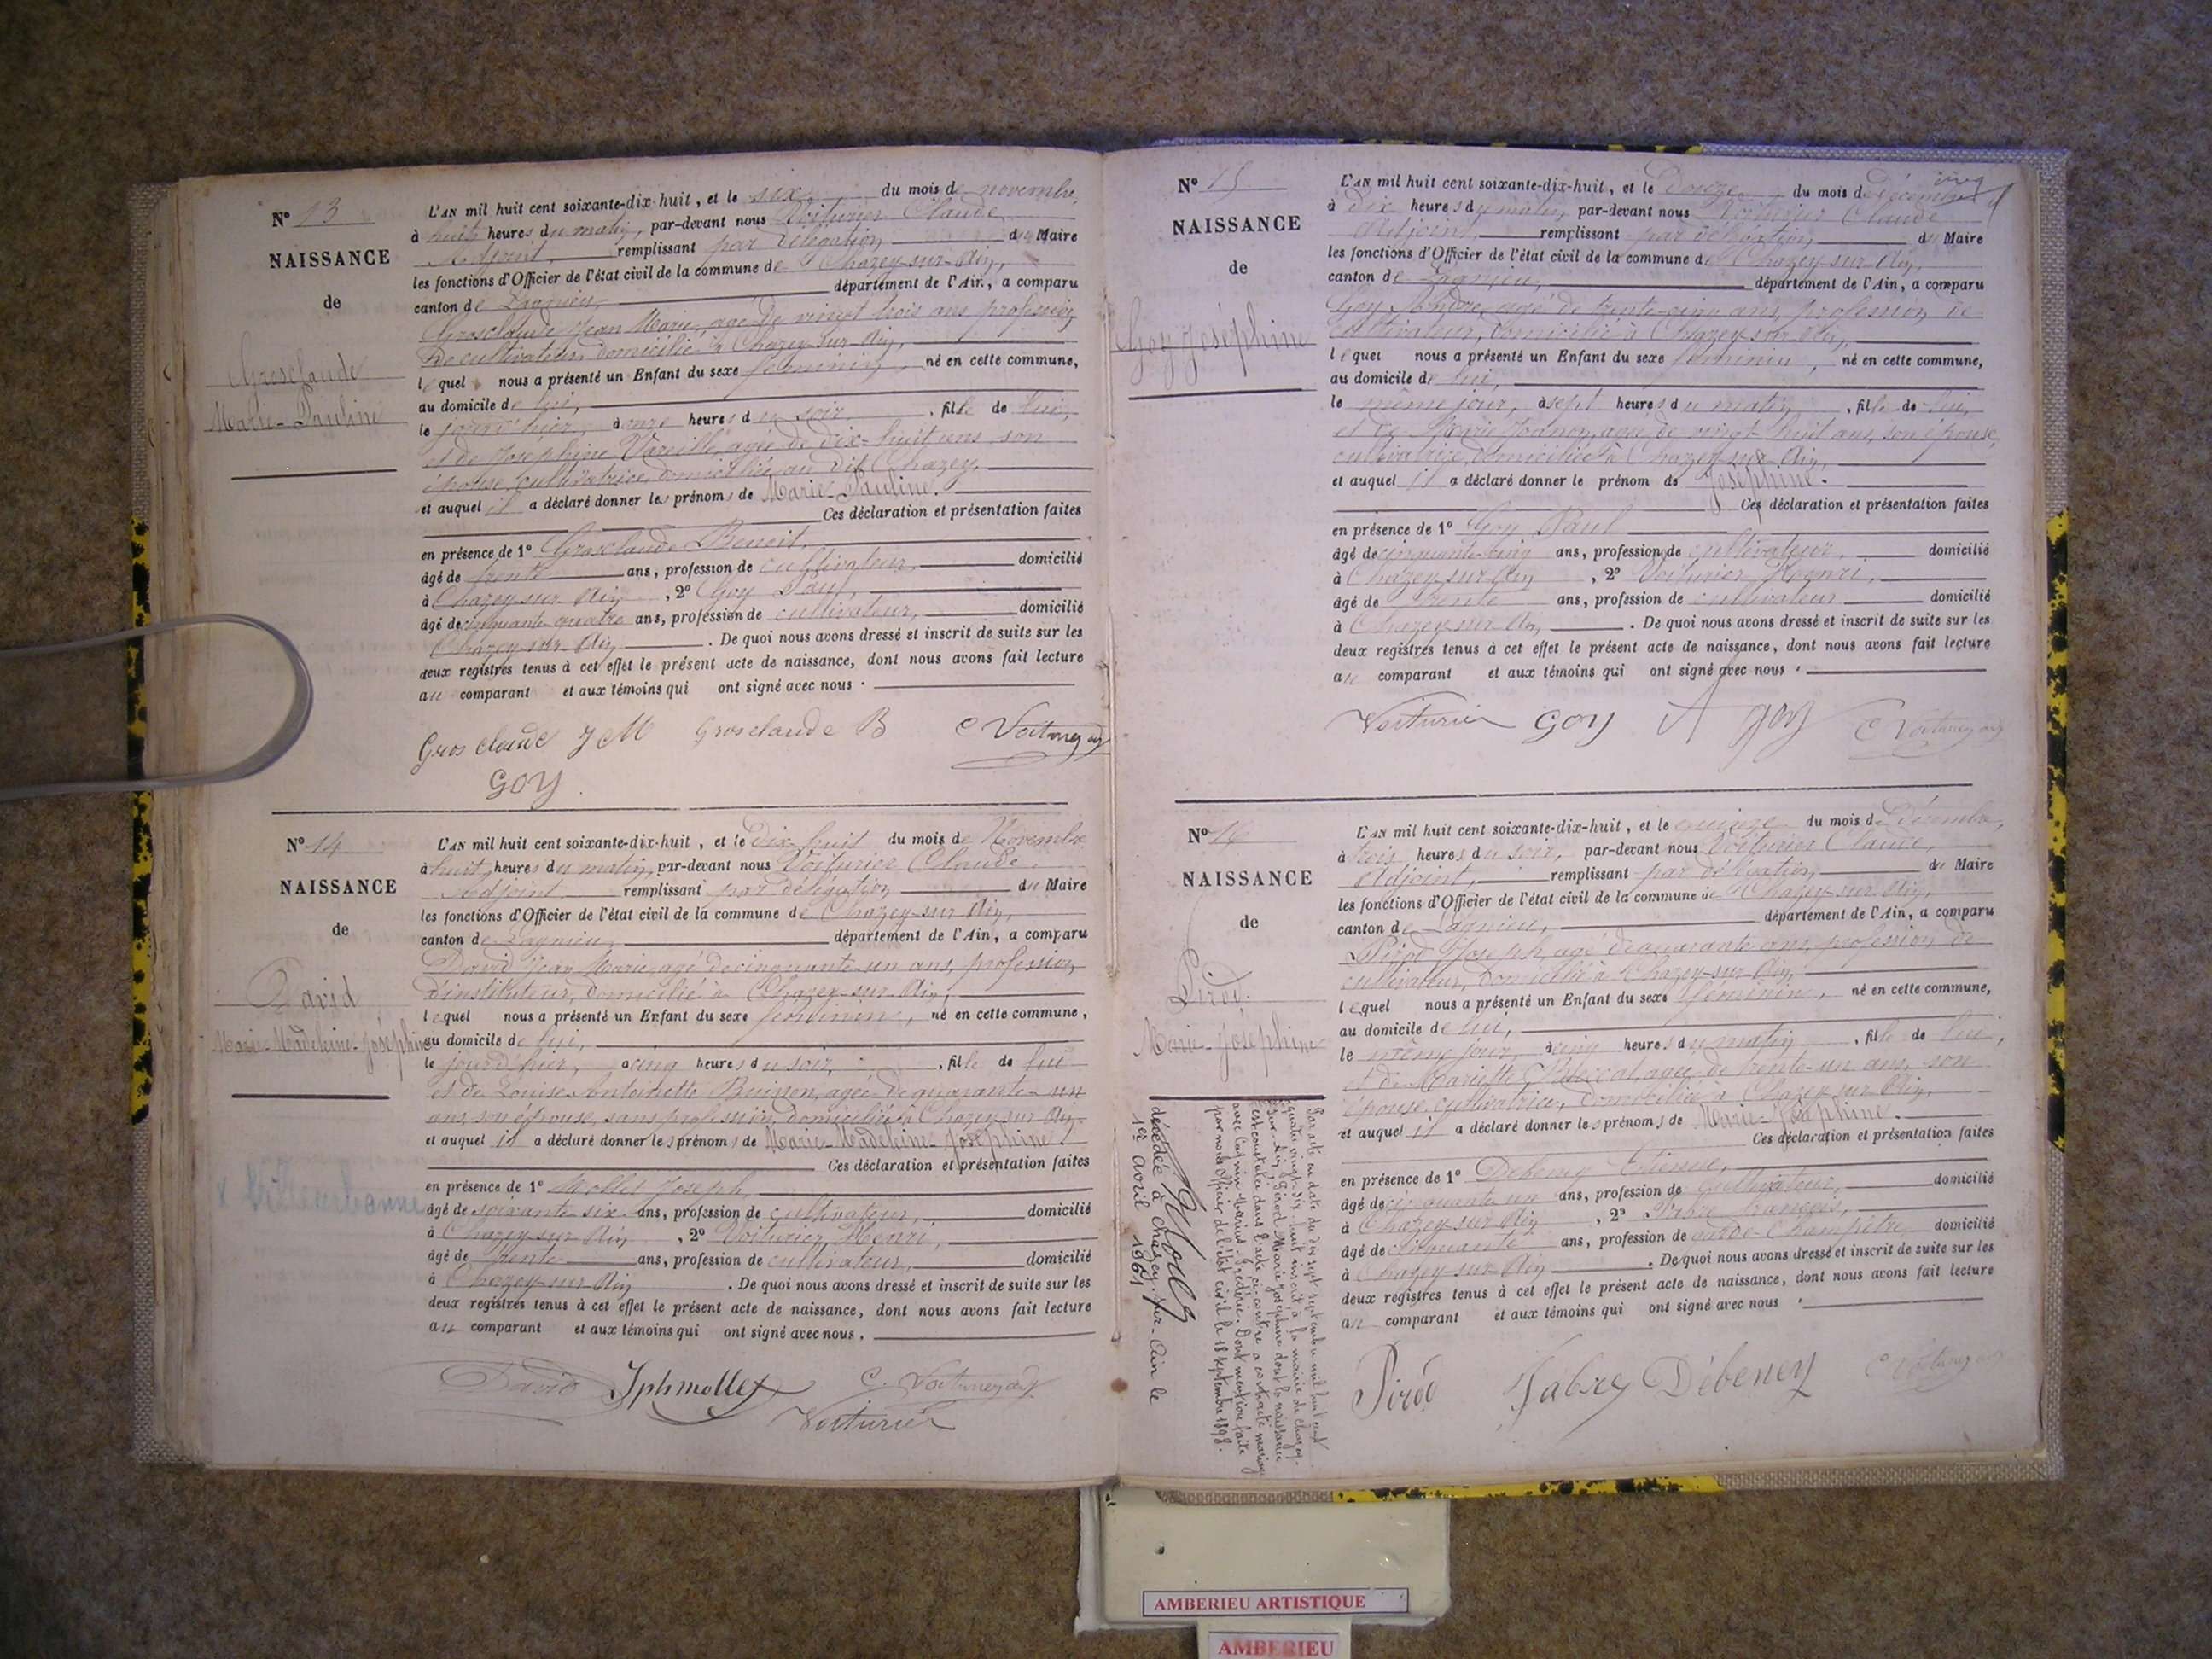 N° 13
NAISSANCE
de
Grosclaude
Marie-Pauline
L'AN mil huit cent soixante-dix-huit, et le six du mois de novembre,
à huit heures du matin, par-devant nous Voiturier Claude
Adjoint, remplissant par délégation du Maire
les fonctions d'Officier de l'état civil de la commune de Chazey-sur-Ain,
canton de Lagnieu, département de l'Ain, a comparu
Grosclaude Jean Marie, agé de vingt trois ans, profession
de cultivateur, domicilié à Chazey-sur-Ain,
lequel nous a présenté un Enfant du sexe féminin, né en cette commune,
au domicile de lui,
le jour d'hier, à onze heures du soir, fille de lui,
et de Joséphine agée de dix-huit ans son
épouse, cultivatrice, domiciliée au dit Chazey,
et auquel il a déclaré donner les prénoms de Marie-Pauline.
Ces déclaration et présentation faites
en présence de 1° Grosclaude Benoit,
âgé de trente ans, profession de cultivateur, domicilié
à Chazey-sur-Ain, 2° Goy Paul,
âgé de cinquante quatre ans, profession de cultivateur, domicilié
Chazey-sur-Ain. De quoi nous avons dressé et inscrit de suite sur les
deux registres tenus à cet effet le présent acte de naissance, dont nous avons fait lecture
au comparant et aux témoins qui ont signé avec nous.
Gros claude J M Grosclaude B C Voiturier adj
GOY
N° 14
NAISSANCE
de
David
Marie-Madeleine-Joséphine
Villeurbanne
L'AN mil huit cent soixante-dix-huit, et le dix-huit du mois de Novembre
à huit heures du matin, par-devant nous Voiturier Claude,
Adjoint, remplissant par délégation du Maire
les fonctions d'Officier de l'état civil de la commune de Chazey-sur-Ain,
canton de Lagnieu, département de l'Ain, a comparu
David Jean Marie agé de cinquante-un ans, profession
d'instituteur, domicilié à Chazey-sur-Ain,
lequel nous a présenté un Enfant du sexe féminin, né en cette commune,
au domicile de lui,
le jour d'hier, à cinq heures du soir, fille de lui
et de Louise Antoinette Buisson, agée de quarante-un
ans, son épouse, sans profession, domiciliée à Chazey-sur-Ain
et auquel il a déclaré donner les prénoms de Marie-Madeleine-Joséphine.
Ces déclaration et présentation faites
en présence de 1° Mollet Joseph,
âgé de soixante-six ans, profession de cultivateur, domicilié
à Chazey-sur-Ain, 2° Voiturier Henri,
âgé de trente ans, profession de cultivateur, domicilié
à Chazey-sur-Ain. De quoi nous avons dressé et inscrit de suite sur les
deux registres tenus à cet effet le présent acte de naissance, dont nous avons fait lecture
au comparant et aux témoins qui ont signé avec nous.
David Jph mollet C. Voiturier adj
Voiturier
N° 15
NAISSANCE
de
Goy Joséphine
L'AN mil huit cent soixante-dix-huit, et le Douze du mois de décembre
à dix heures du matin, par-devant nous Voiturier Claude
Adjoint, remplissant par délégation du Maire
les fonctions d'Officier de l'état civil de la commune de Chazey-sur-Ain,
canton de Lagnieu, département de l'Ain, a comparu
Goy André, agé de trente-cinq ans, profession de
cultivateur, domicilié à Chazey-sur-Ain,
lequel nous a présenté un Enfant du sexe féminin, né en cette commune,
au domicile de lui,
le même jour, à sept heures du matin, fille de lui,
et de Marie agée de vingt-huit ans, son épouse,
cultivatrice, domiciliée à Chazey-sur-Ain,
et auquel il a déclaré donner le prénom de Joséphine.
Ces déclaration et présentation faites
en présence de 1° Goy Paul
âgé de cinquante-cinq ans, profession de cultivateur, domicilié
à Chazey-sur-Ain, 2° Voiturier Henri,
âgé de trente ans, profession de cultivateur domicilié
à Chazey-sur-Ain. De quoi nous avons dressé et inscrit de suite sur les
deux registres tenus à cet effet le présent acte de naissance, dont nous avons fait lecture
au comparant et aux témoins qui ont signé avec nous.
Voiturier GOY A goy C Voiturier adj
N° 16
NAISSANCE
de
Pirod
Marie-Joséphine
L'AN mil huit cent soixante-dix-huit, et le quinze du mois de Décembre,
à trois heures du soir, par-devant nous Voiturier Claude,
Adjoint, remplissant par délégation du Maire
les fonctions d'Officier de l'état civil de la commune de Chazey-sur-Ain,
canton de Lagnieu, département de l'Ain, a comparu
Pirod Joseph, agé de quarante ans, profession de
cultivateur, domicilié à Chazey-sur-Ain,
lequel nous a présenté un Enfant du sexe féminin, né en cette commune,
au domicile de lui,
le même jour, à cinq heures du matin, fille de lui,
et de Mariette agée de trente-un ans, son
épouse, cultivatrice, domiciliée à Chazey-sur-Ain,
et auquel il a déclaré donner les prénoms de Marie-Joséphine.
Ces déclaration et présentation faites
en présence de 1° Debeney Etienne,
âgé de cinquante un ans, profession de cultivateur, domicilié
à Chazey-sur-Ain, 2° Fabre François,
âgé de cinquante ans, profession de garde-Champêtre, domicilié
à Chazey-sur-Ain. De quoi nous avons dressé et inscrit de suite sur les
deux registres tenus à cet effet le présent acte de naissance, dont nous avons fait lecture
au comparant et aux témoins qui ont signé avec nous.
Pirod Fabre Débeney C Voiturier
Par acte en date du dix sept septembre mil huit cent
quatre vingt-dix huit inscrit à la mairie de Chazey-
sur-Ain, Pirod Marie Joséphine dont la naissance
est constatée dans l'acte ci-contre a contracté mariage
avec Marius Frédéric. Dont mention faite
par nous officier de l'état civil le 18 septembre 1898.
décédée à Chazey-sur-Ain le
1er avril 1961
AMBERIEU ARTISTIQUE
AMBERIEU